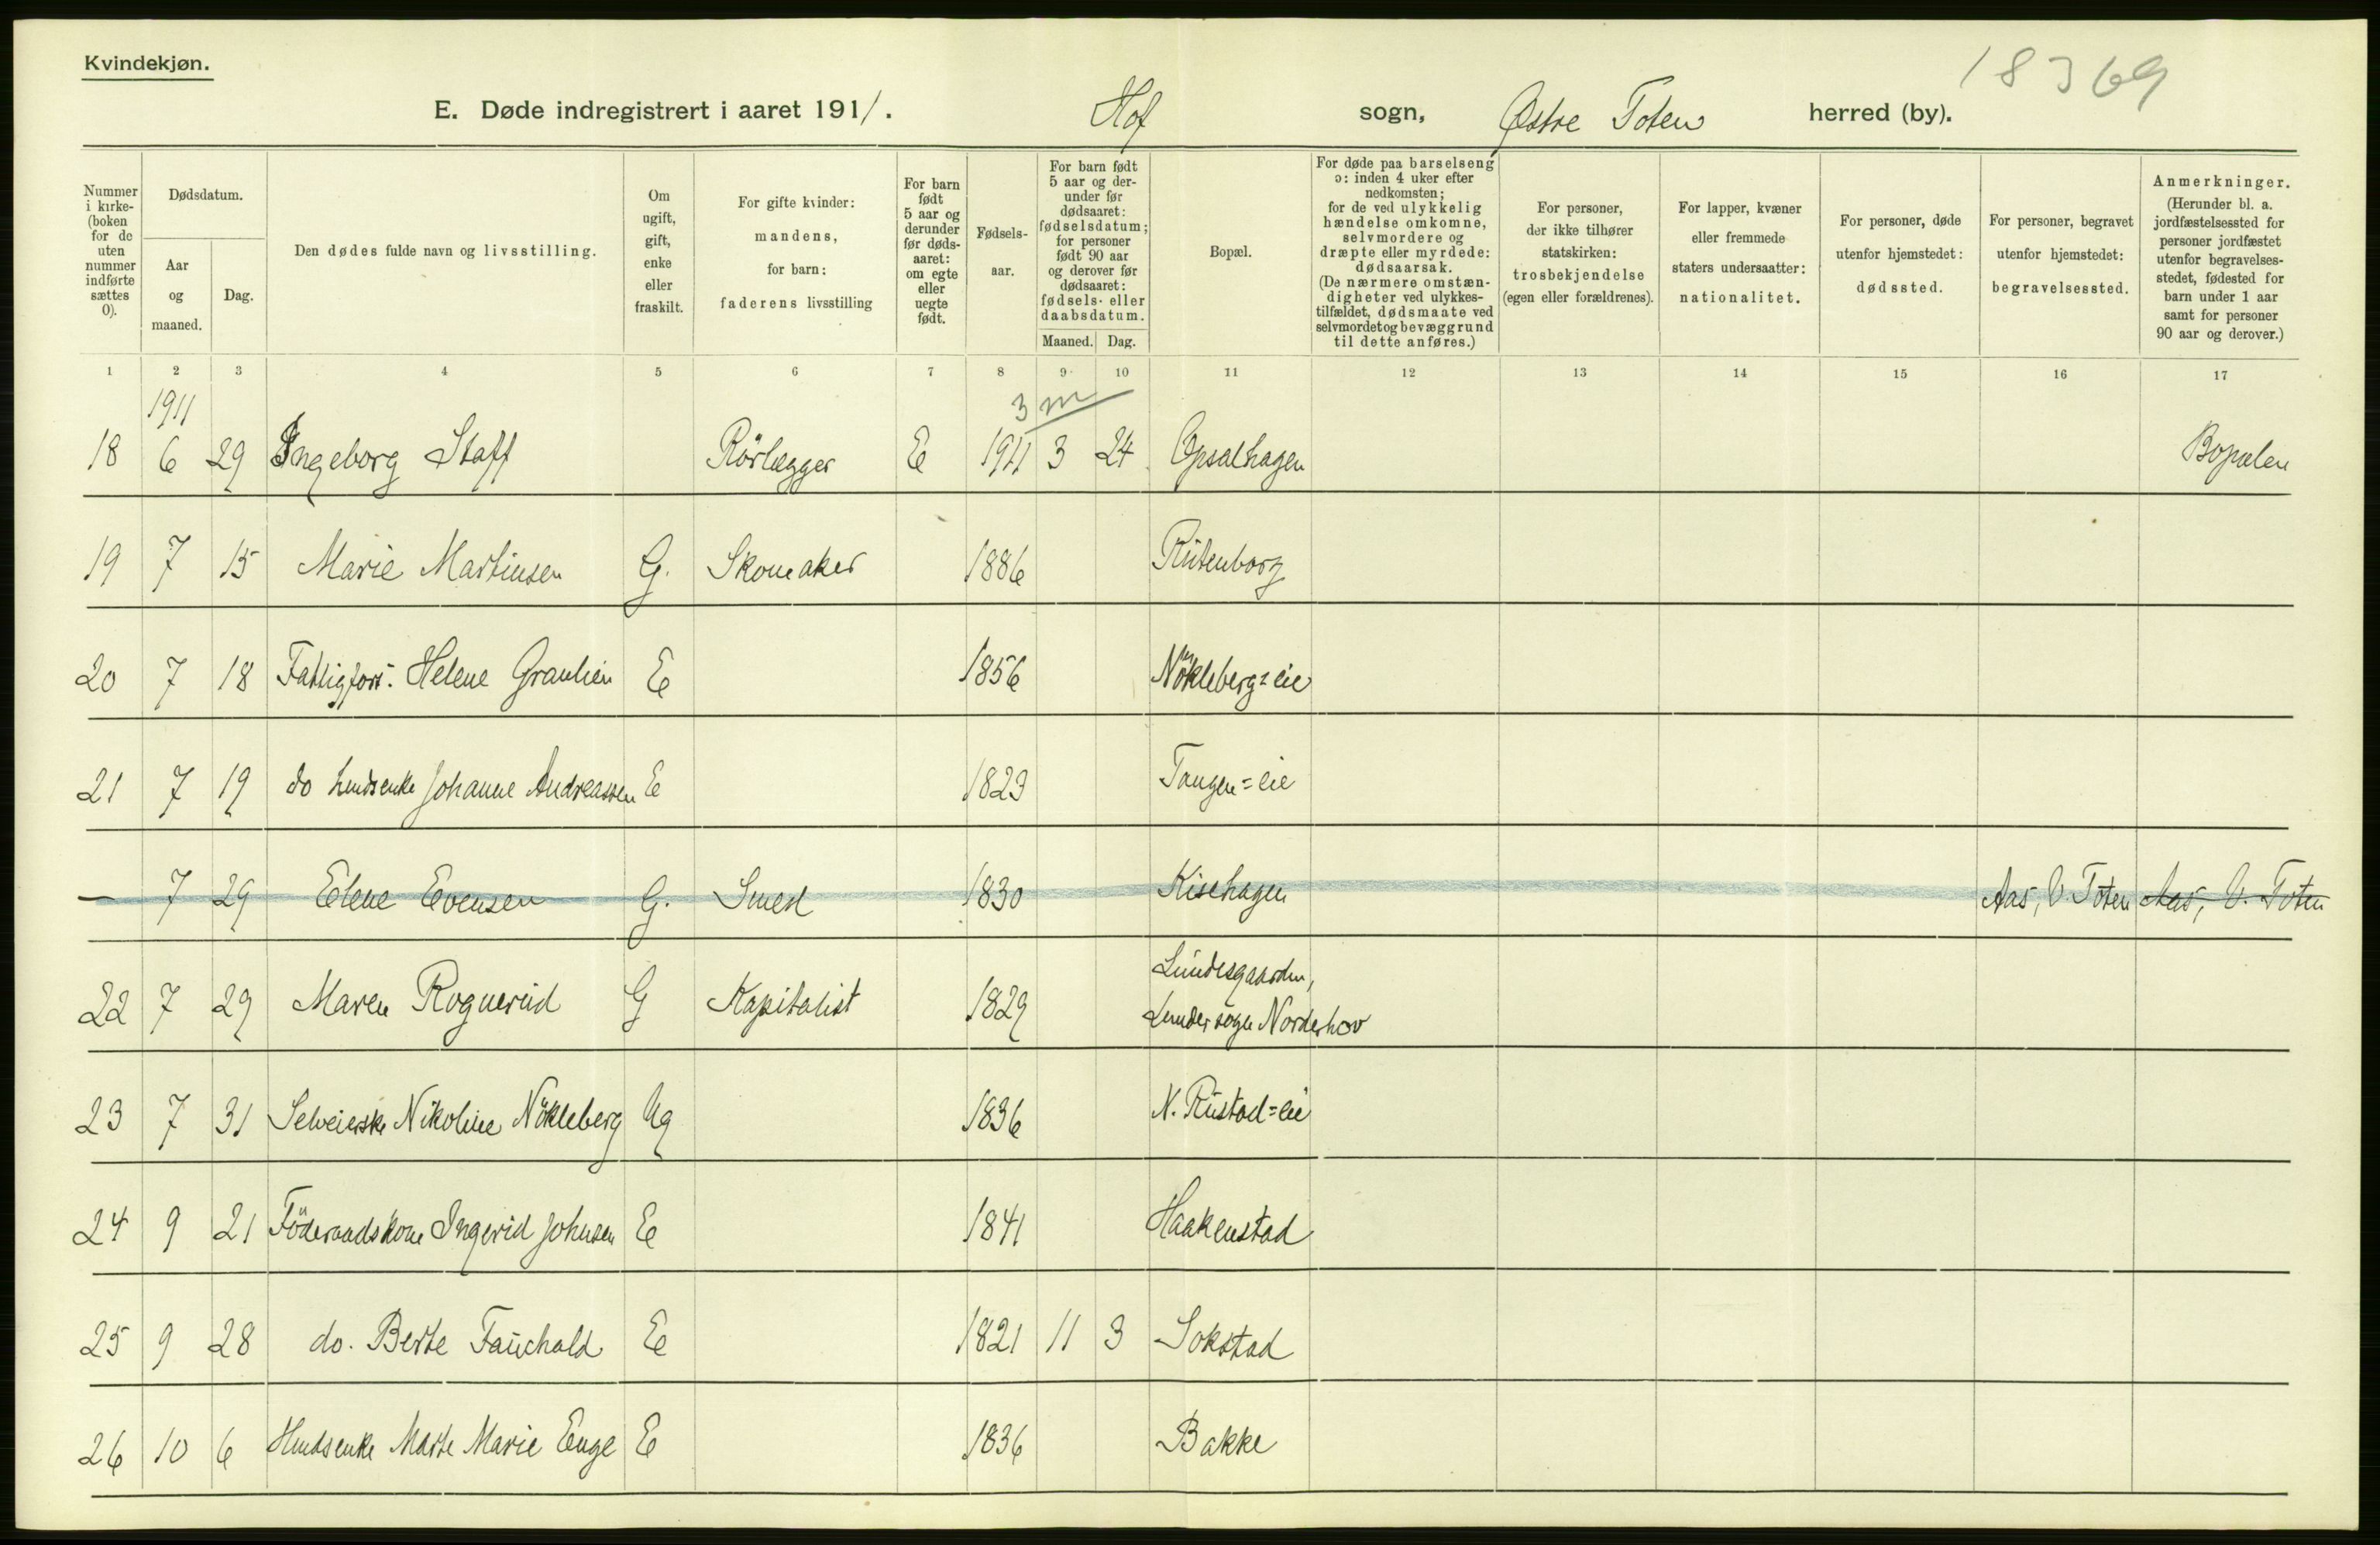 Kvindekjøn.
18369
E. Døde indregistrert i aaret 1911. Hof sogn, Østre Toten herred (by).
Nummer i kirke- (boken for de uten nummer indførte sættes 0).
Dødsdatum.
Aar og maaned.
Dag.
Den dødes fulde navn og livsstilling.
Om ugift, gift, enke eller fraskilt.
For gifte kvinder: mandens, for barn: faderens livsstilling
For barn født 5 aar og derunder før døds- aaret: om egte eller uegte født.
Fødsels- aar.
For barn født 5 aar og der- under før dødsaaret: fødselsdatum; for personer født 90 aar og derover før dødsaaret: fødsels- eller daabsdatum.
Maaned. Dag.
Bopæl.
For døde paa barselseng ɔ: inden 4 uker efter nedkomsten; for de ved ulykkelig hændelse omkomne, selvmordere og dræpte eller myrdede: dødsaarsak. (De nærmere omstæn- digheter ved ulykkes- tilfældet, dødsmaate ved selvmord et og bevæggrund til dette anføres.)
For personer, der ikke tilhører statskirken: trosbekjendelse (egen eller forældrenes).
For lapper, kvæner eller fremmede staters undersaatter: nationalitet.
For personer, døde utenfor hjemstedet: dødssted.
For personer, begravet utenfor hjemstedet: begravelsessted.
Anmerkninger. (Herunder bl. a. jordfæstelsessted for personer jordfæstet utenfor begravelses- stedet, fødested for barn under 1 aar samt for personer 90 aar og derover.)
1 2 3 4 5 6 7 8 9 10 11 12 13 14 15 16 17
1911 3 m
18 6 29 Ingeborg Staff Rörlægger E 1911 3 24 Opsalhagen Bopælen
19 7 15 Marie Martinsen G. Skomaker 1886 Rutenborg
20 7 18 Fattigfors. Helene Granlien E 1856 Nökleberg=eie
21 7 19 do husdsenke Johanne Andreassen E 1823 Tangen=eie
— 7 29 Elene Evensen G. Smed 1830 Kisehagen Aas, V. Toten Aas, V. Toten
22 7 29 Maren Rognerud G Kapitalist 1829 Lundesgaarden,
Lunder sogn Norderhov
23 7 31 Selveierske Nikoline Nökleberg Ug 1836 N. Rustad=eie
24 9 21 Föderaadskone Ingerid Johnsen E 1841 Haakenstad
25 9 28 do. Berte Fauchald E 1821 11 3 Sokstad
26 10 6 Husdsenke Marte Marie Enge E 1836 Bakke